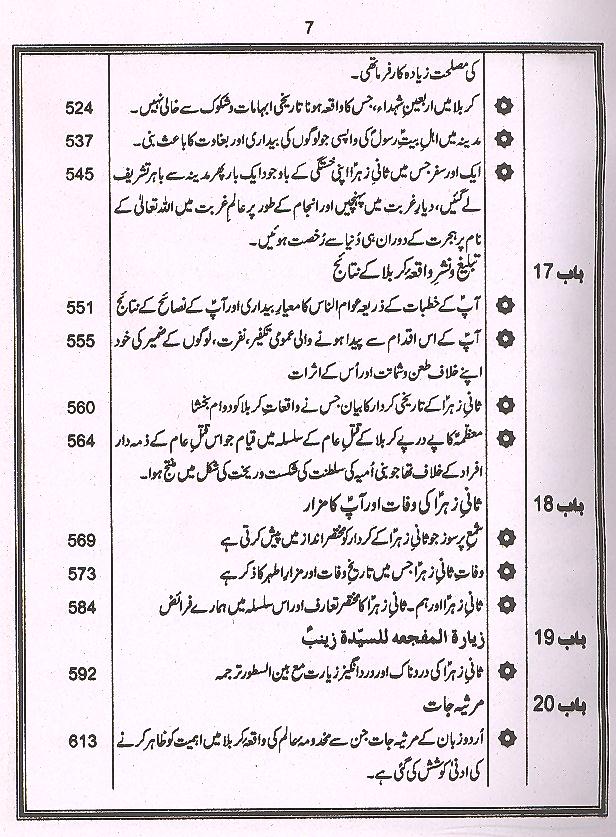 7
کی مصلحت زیادہ کارفرما تھی۔
کربلا میں اربعینِ شہداء، جس کا واقعہ ہونا تاریخی ابہامات و شکوک سے خالی نہیں۔ 524
مدینہ میں اہلِ بیتِ رسولؐ کی واپسی جو لوگوں کی بیداری اور بغاوت کا باعث بنی۔ 537
ایک اور سفر جس میں ثانیِ زہراؑ اپنی خستگی کے باوجود ایک بار پھر مدینہ سے باہر تشریف 545
لے گئیں، دیارِ غربت میں پہنچیں اور انجام کے طور پر عالمِ غربت میں اللہ تعالیٰ کے
نام پر ہجرت کے دوران ہی دُنیا سے رُخصت ہوئیں۔
باب 17 تبلیغ و نشرِ واقعۂ کربلا کے نتائج
آپؑ کے خطبات کے ذریعہ عوام الناس کا معیارِ بیداری اور آپؑ کے نصائح کے نتائج 551
آپؑ کے اس اقدام سے پیدا ہونے والی عمومی تکفیر، نفرت، لوگوں کے ضمیر کی خود 555
اپنے خلاف طعن و شماتت اور اُس کے اثرات
ثانیِ زہراؑ کے تاریخی کردار کا بیان جس نے واقعاتِ کربلا کو دوام بخشا 560
معظمہؑ کا پے در پے کربلا کے قتلِ عام کے سلسلہ میں قیام جو اس قتلِ عام کے ذمہ دار 564
افراد کے خلاف تھا جو بنی اُمیہ کی سلطنت کی شکست و ریخت کی شکل میں منتج ہوا۔
باب 18 ثانیِ زہراؑ کی وفات اور آپؑ کا مزار
شمعِ پرسوز جو ثانیِ زہراؑ کے کردار کو مختصر انداز میں پیش کرتی ہے 569
وفاتِ ثانیِ زہراؑ جس میں تاریخِ وفات اور مزارِ اطہر کا ذکر ہے 573
ثانیِ زہراؑ اور ہم۔ ثانیِ زہراؑ کا مختصر تعارف اور اس سلسلہ میں ہمارے فرائض 584
باب 19 زیارة المفجعه للسیّدة زینبؑ
ثانیِ زہراؑ کی دردناک اور درد انگیز زیارت مع بین السطور ترجمہ 592
باب 20 مرثیہ جات
اُردو زبان کے مرثیہ جات جن سے مخدومۂ عالم کی واقعۂ کربلا میں اہمیت کو ظاہر کرنے 613
کی ادنیٰ کوشش کی گئی ہے۔